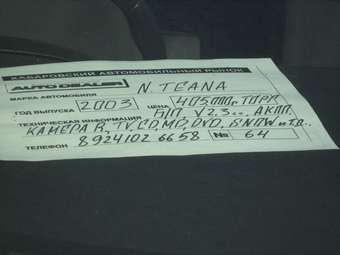 ХАБАРОВСКИЙ АВТОМОБИЛЬНЫЙ РЫНОК
AUTO DEALER
МАРКА АВТОМОБИЛЯ N. TEANA
ГОД ВЫПУСКА 2003 ЦЕНА 405.000 г. ТОРГ
ТЕХНИЧЕСКАЯ ИНФОРМАЦИЯ Б/П, V2,3.., АКПП,
КАМЕРА R, TV, CD, MD, DVD, SNOW и т.д..
ТЕЛЕФОН 8924102 6658 № 64